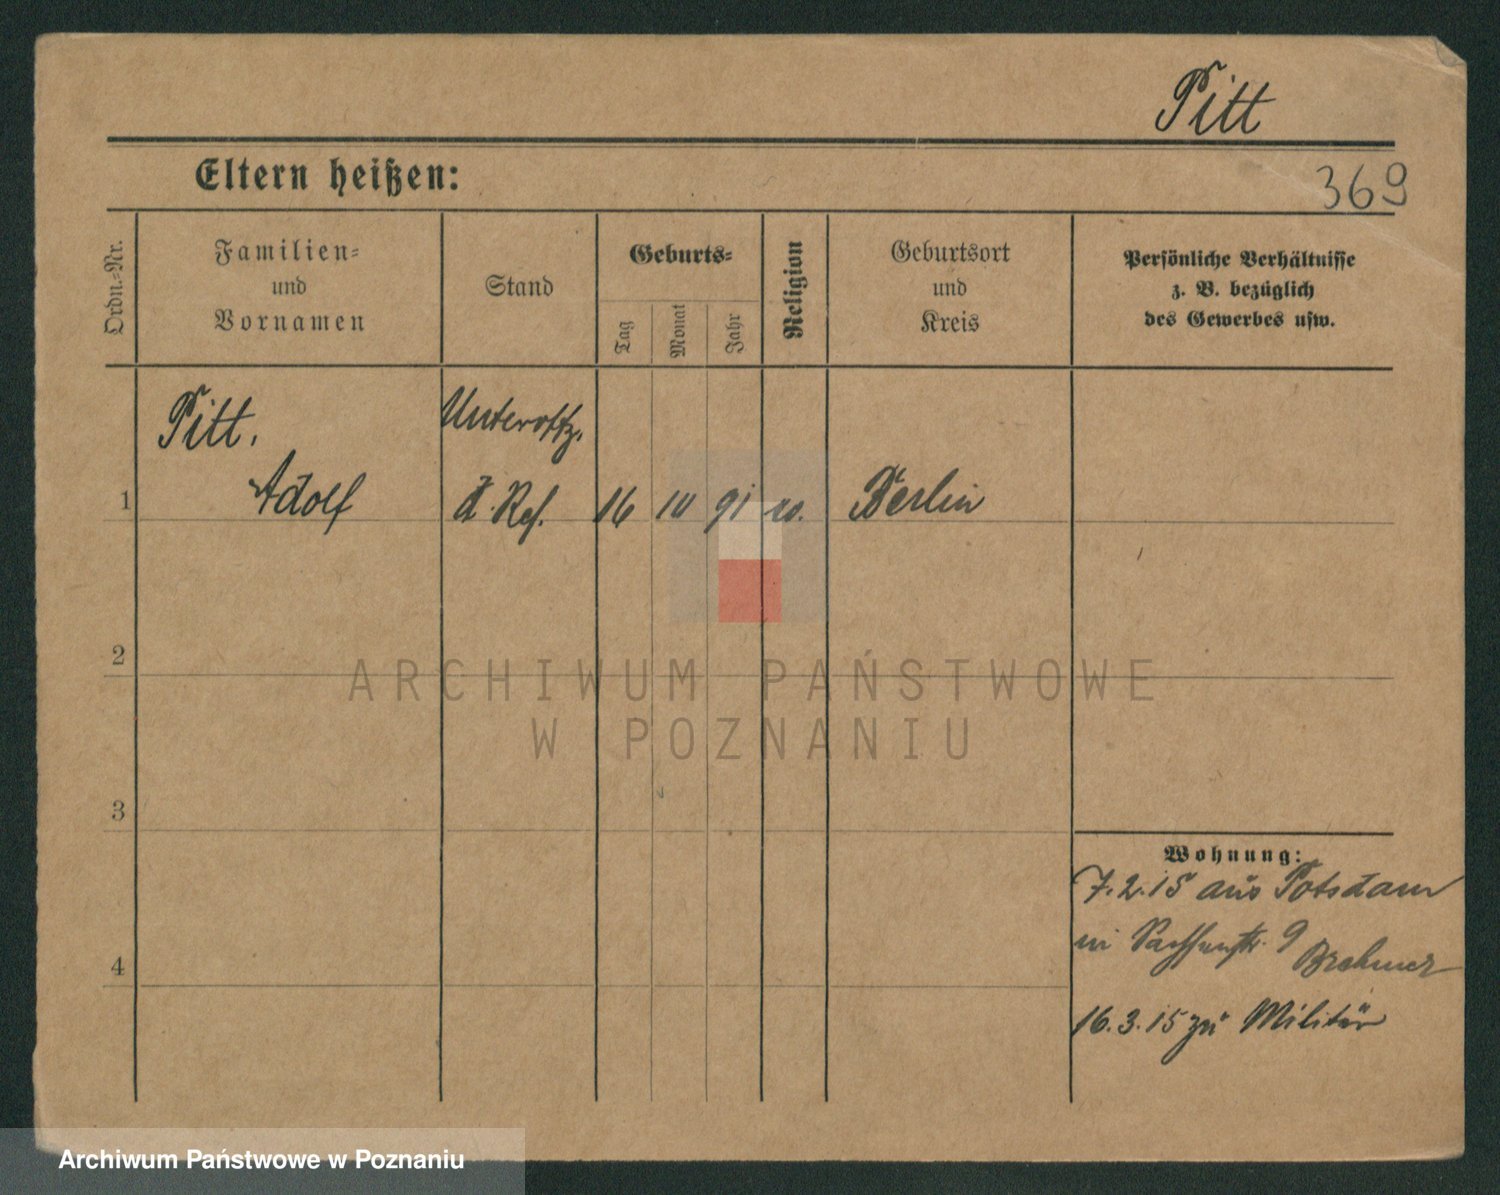 Pitt
Eltern heißen:
369
Ordn.-Nr.
Familien-
und
Vornamen
Stand
Geburts-
Tag
Monat
Jahr
Religion
Geburtsort
und
Kreis
Persönliche Verhältnisse
z. B. bezüglich
des Gewerbes usw.
Pitt.
Unteroffz.
1
Adolf
d. Res.
16
10
91
Berlin
2
ARCHIWUM PAŃSTWOWE
W POZNANIU
3
Wohnung:
7.2.15 aus Potsdam
in Sachsenstr. 9
Brehmer
4
16.3.15 zu Militär
Archiwum Państwowe w Poznaniu